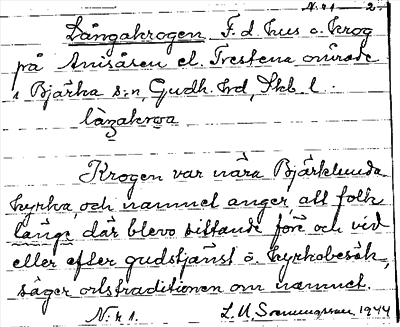 N:r 1 2
Långakrogen, F. d. hus o. krog
på Anisåsen el. Trestena område
i Bjärka s:n, Gudh. hd, Skb. l.
Krogen var nära Bjärklunda
kyrka, och namnet anger att folk
länge där blevo sittande före och vid
eller efter gudstjänst o. kyrkobesök,
säger ortstraditionen om namnet.
N:r 1. L. M. 1944